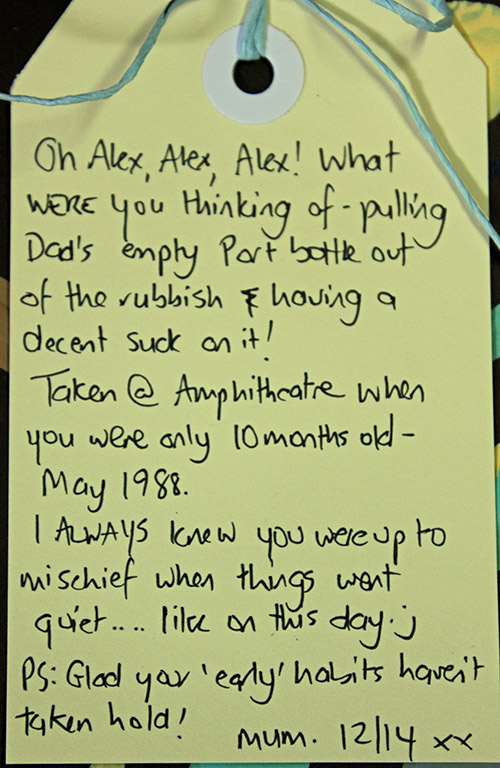 Oh Alex, Alex, Alex! What
WERE you thinking of - pulling
Dad's empty Port bottle out
of the rubbish & having a
decent suck on it!
Taken @ Amphitheatre when
you were only 10 months old -
May 1988.
I ALWAYS knew you were up to
mischief when things went
quiet.... like on this day.:)
PS: Glad your 'early' habits haven't
taken hold!
mum. 12/14 xx